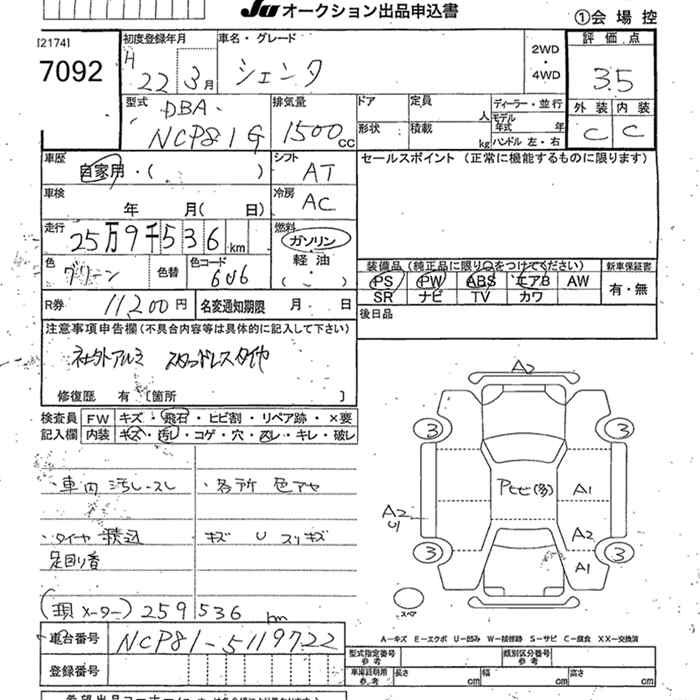 JU オークション出品申込書
①会場控
[2174]
7092
初度登録年月
H 22 3月
車名・グレード
シエンタ
2WD
・
4WD
評価点
3.5
外装 内装
C C
型式
DBA-
NCP81G
排気量
1500cc
ドア
形状
定員 人
積載 kg
ディーラー・並行
モデル年式 年
ハンドル 左・右
車歴
自家用・( )
シフト
AT
セールスポイント (正常に機能するものに限ります)
車検
年 月( 日)
冷房
AC
走行
25万9千536km
燃料
ガソリン
軽油
( . )
色
グリーン
色替
色コード
6U6
装備品(純正品に限り○をつけてください)
PS PW ABS エアB AW
SR ナビ TV カワ
新車保証書
有・無
R券
11,200円
名変通知期限 月 日
後日品
注意事項申告欄(不具合内容等は具体的に記入して下さい)
社外アルミ スタッドレスタイヤ
修復歴 有〔箇所 〕
検査員記入欄
FW キズ・飛石・ヒビ割・リペア跡・×要
内装 キズ・汚レ・コゲ・穴・スレ・キレ・破レ
・車内汚レ・スレ
・各所 色アセ
・タイヤ積込
キズ U スリキズ
足回り春
(現メーター)259536km
車台番号
NCP81-5119722
登録番号
A2
3 3
A2
U1
Pヒビ(多)
A1
A2
A1
3 3
スペア
A-キズ E-エクボ U-凹み W-補修跡 S-サビ C-腐食 XX-交換済
型式指定番号 参考
類別区分番号 参考
車庫証明用 参考
長さ cm 幅 cm 高さ cm